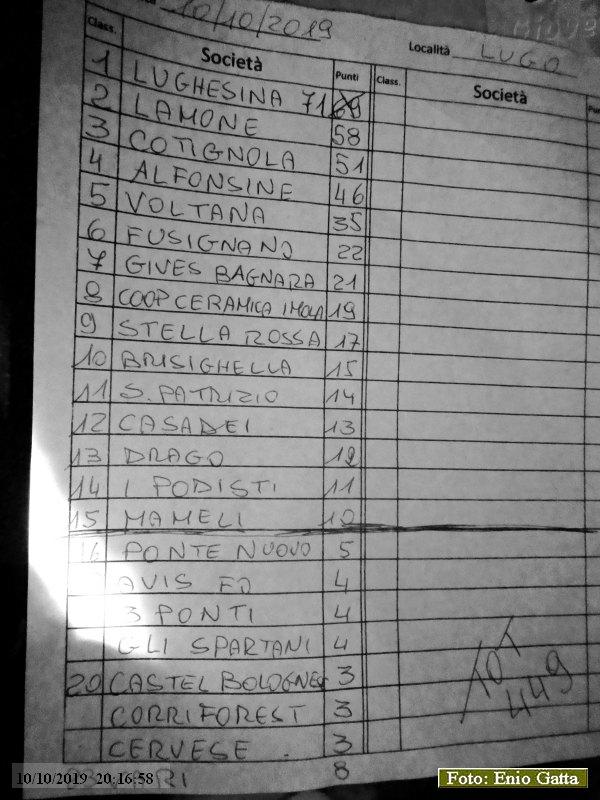 10/10/2019
Località LUGO
Class. Società Punti Class. Società
1 LUGHESINA 71 69
2 LAMONE 58
3 COTIGNOLA 51
4 ALFONSINE 46
5 VOLTANA 35
6 FUSIGNANO 22
7 GIVES BAGNARA 21
8 COOP CERAMICA IMOLA 19
9 STELLA ROSSA 17
10 BRISIGHELLA 15
11 S. PATRIZIO 14
12 CASADEI 13
13 DRAGO 12
14 I PODISTI 11
15 MAMELI 10
16 PONTE NUOVO 5
AVIS FO 4
3 PONTI 4
GLI SPARTANI 4
20 CASTEL BOLOGNESE 3
CORRIFOREST 3
CERVESE 3
8
TOT
449
10/10/2019 20:16:58
Foto: Enio Gatta